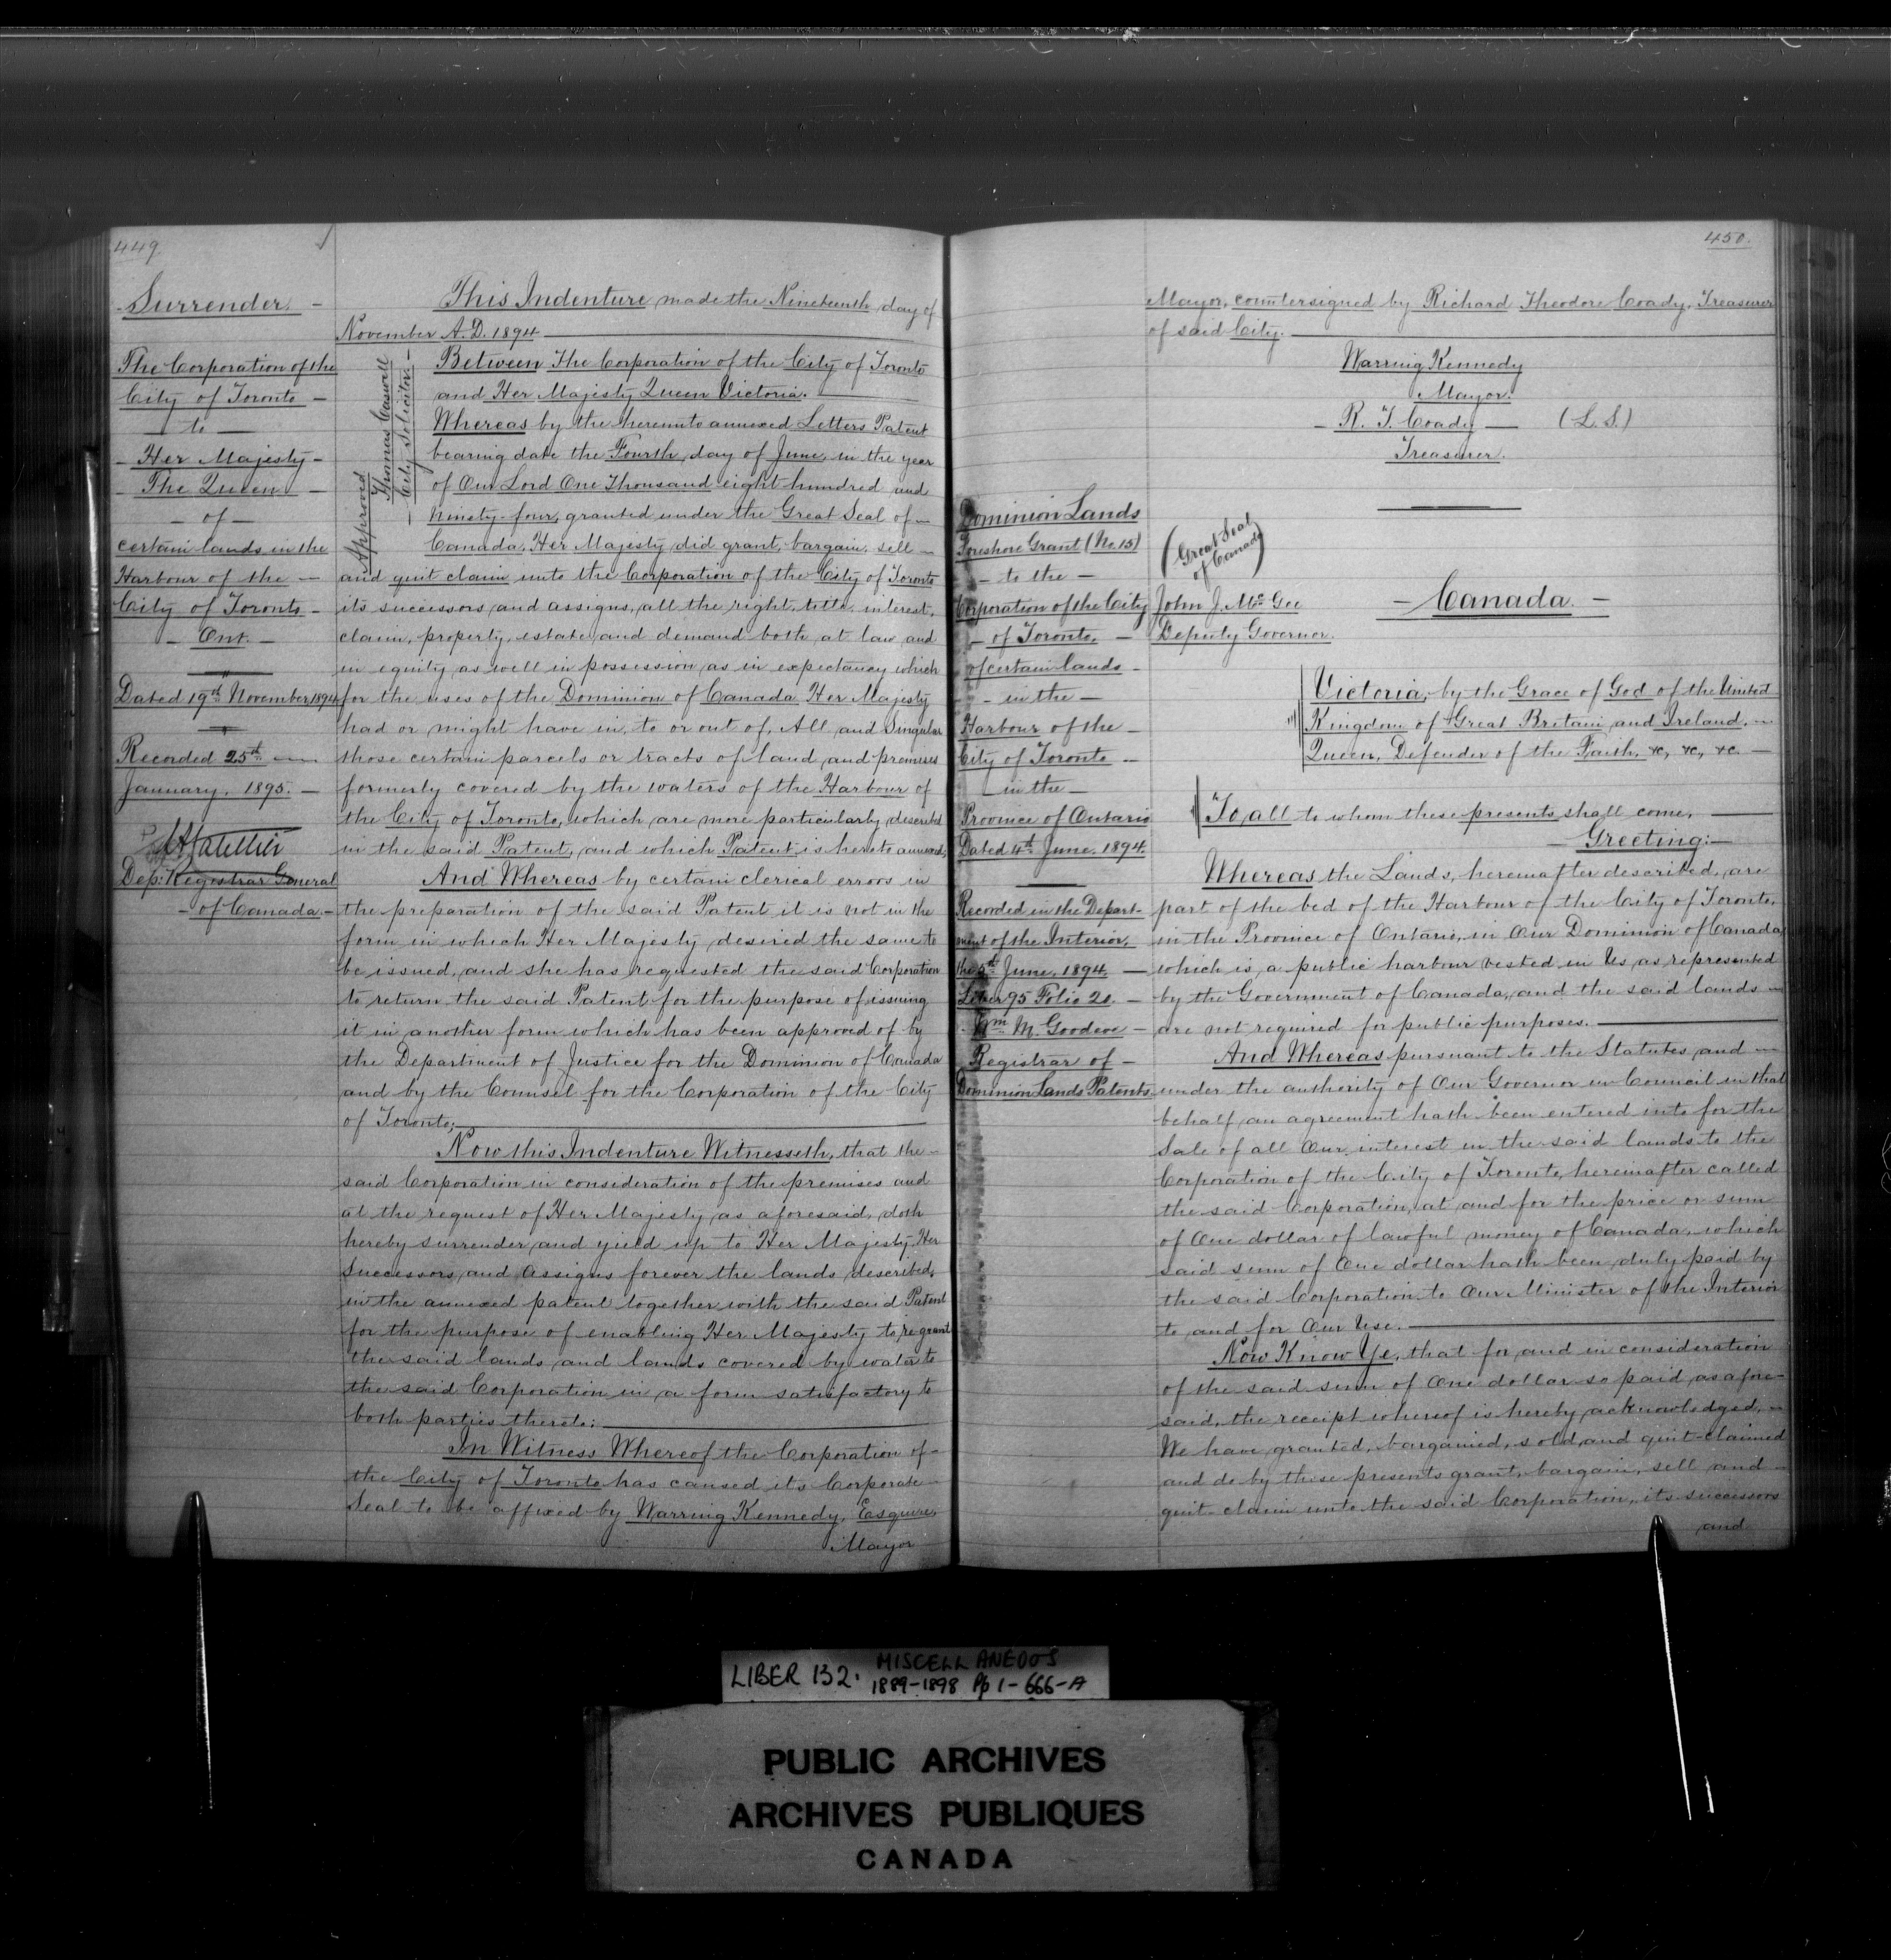 449.
Surrender. -
The Corporation of the
City of Toronto -
- to -
- Her Majesty -
- The Queen -
- of -
certain lands in the
Harbour of the -
City of Toronto -
- Ont. -
Dated 19th November 1894
Recorded 25th -
January, 1895. -
Dep: Registrar General
- of Canada. -
Approved
Thomas Caswell
- City Solicitor. -
This Indenture made the Nineteenth day of
November A.D. 1894
Between The Corporation of the City of Toronto
and Her Majesty Queen Victoria.
Whereas by the hereunto annexed Letters Patent
bearing date the Fourth day of June, in the year
of Our Lord One Thousand eight hundred and
ninety-four, granted under the Great Seal of -
Canada, Her Majesty did grant, bargain, sell -
and quit claim unto the Corporation of the City of Toronto
its successors and assigns, all the right, title, interest,
claim, property, estate and demand both at law and
in equity as well in possession as in expectancy which
for the uses of the Dominion of Canada Her Majesty
had or might have in, to or out of, All and Singular
those certain parcels or tracts of land and premises
formerly covered by the waters of the Harbour of
the City of Toronto, which are more particularly described
in the said Patent, and which Patent is hereto annexed,
And Whereas by certain clerical errors in
the preparation of the said Patent it is not in the
form in which Her Majesty desired the same to
be issued, and she has requested the said Corporation
to return the said Patent for the purpose of issuing
it in another form which has been approved of by
the Department of Justice for the Dominion of Canada
and by the Counsel for the Corporation of the City
of Toronto;
Now this Indenture Witnesseth, that the -
said Corporation in consideration of the premises and
at the request of Her Majesty as aforesaid, doth
hereby surrender and yield up to Her Majesty Her
Successors and Assigns forever the lands described,
in the annexed patent together with the said Patent
for the purpose of enabling Her Majesty to regrant
the said lands and lands covered by water to
the said Corporation in a form satisfactory to
both parties thereto:
In Witness Whereof the Corporation of -
the City of Toronto has caused its Corporate -
Seal to be affixed by Warring Kennedy, Esquire,
Mayor
450.
Mayor, countersigned by Richard Theodore Coady, Treasurer
of said City.
Warring Kennedy
Mayor.
- R. T. Coady - (L. S.)
Treasurer.
Dominion Lands
Foreshore Grant (No. 15)
- to the -
Corporation of the City
- of Toronto, -
of certain lands -
- in the -
Harbour of the -
City of Toronto -
- in the -
Province of Ontario
Dated 4th June, 1894.
Recorded in the Depart-
ment of the Interior,
the 5th June, 1894. -
Liber 95 Folio 20. -
Wm M. Goodeve -
Registrar of -
Dominion Lands Patents
(Great Seal
of Canada)
John J. McGee
Deputy Governor.
- Canada. -
Victoria, by the Grace of God of the United
Kingdom of Great Britain and Ireland, -
Queen, Defender of the Faith, &c, &c, &c. -
To all to whom these presents shall come,
- Greeting: -
Whereas the Lands, hereinafter described, are
part of the bed of the Harbour of the City of Toronto,
in the Province of Ontario, in Our Dominion of Canada,
which is a public harbour vested in Us as represented
by the Government of Canada, and the said lands -
are not required for public purposes.
And Whereas pursuant to the Statutes and -
under the authority of Our Governor in Council in that
behalf an agreement hath been entered into for the
Sale of all Our interest in the said lands to the
Corporation of the City of Toronto, hereinafter called
the said Corporation, at and for the price or sum
of One dollar of lawful money of Canada, which
said sum of One dollar hath been duly paid by
the said Corporation to Our Minister of the Interior
to and for Our Use.
Now Know Ye, that for and in consideration
of the said sum of One dollar so paid as afore-
said, the receipt whereof is hereby acknowledged, -
We have granted, bargained, sold and quit-claimed
and do by these presents grant, bargain, sell and -
quit-claim unto the said Corporation, its successors
and
LIBER 132: MISCELLANEOUS
1889-1898 Pp 1-666-A
PUBLIC ARCHIVES
ARCHIVES PUBLIQUES
CANADA